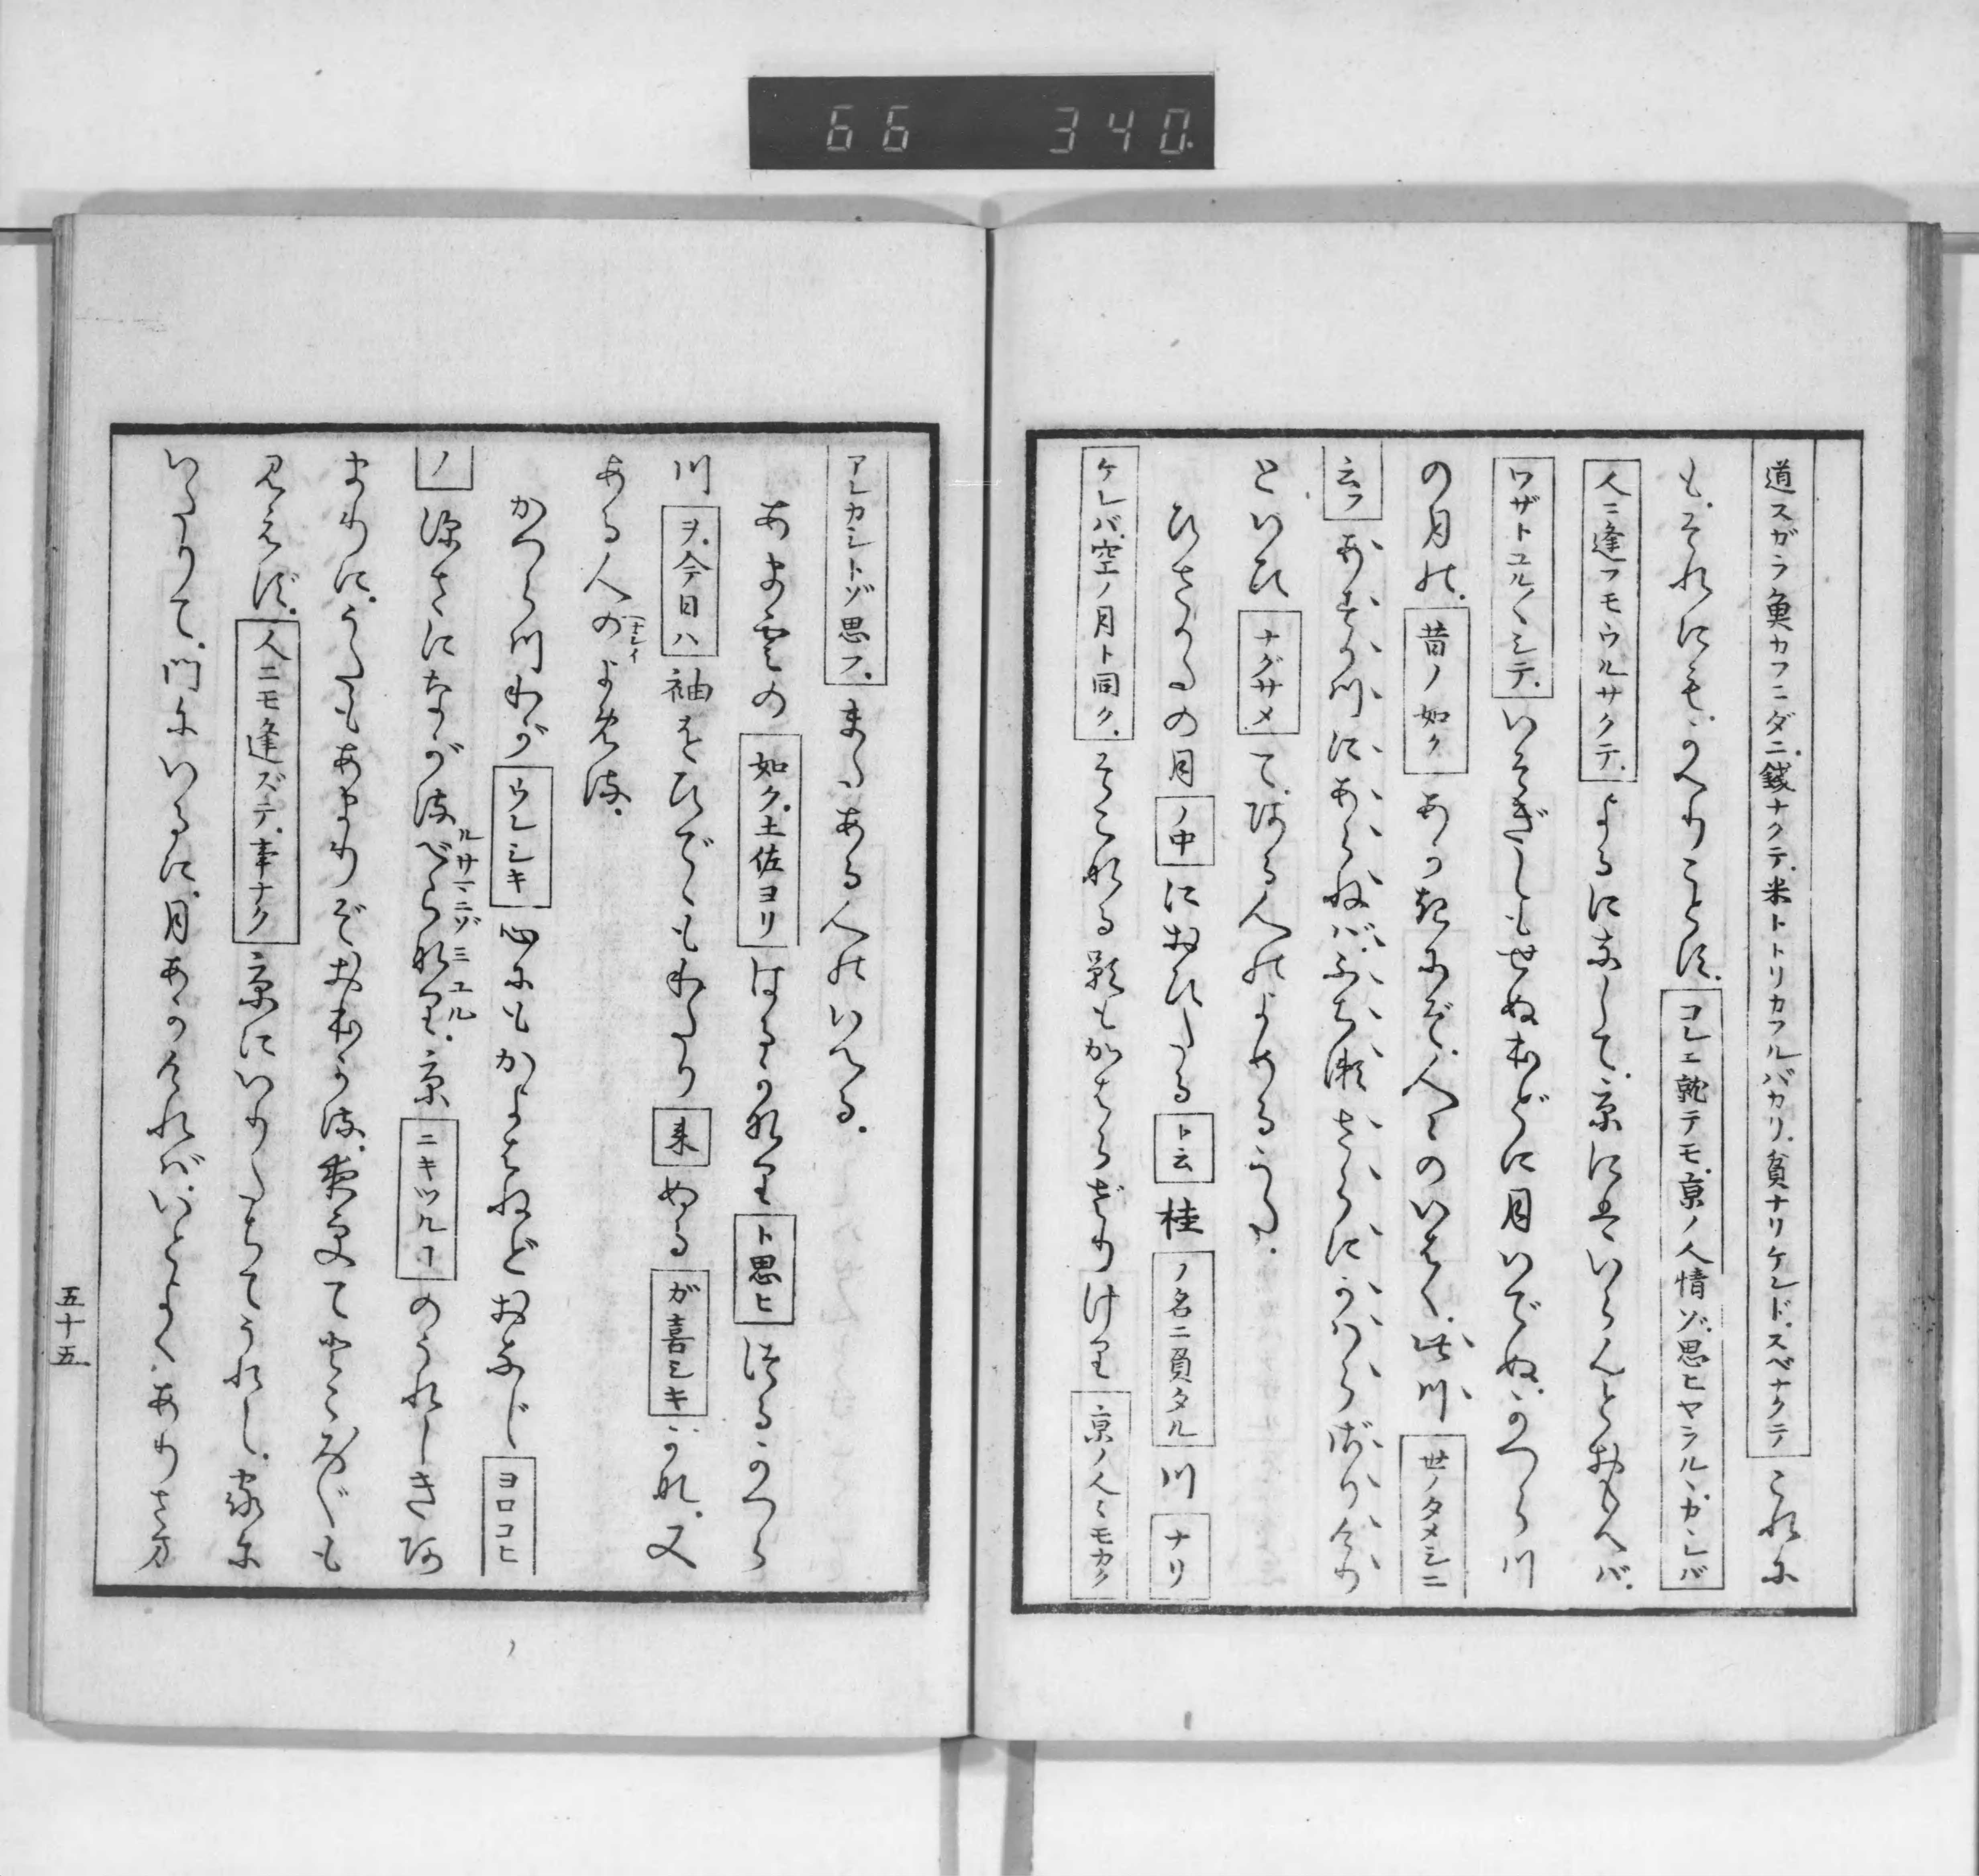 66 340.
道スガラ魚カフニダニ.銭ナクテ.米トトリカフルバカリ.貧ナリケレド.スベナクテ これに
も.それにも.かへりことす.コレニ就テモ.京ノ人情ゾ.思ヒヤラルヽ.カヽレバ
人ニ逢フモウルサクテ.よるになして.京にはいらんとおもへバ.
ワザトユル〱シテ.いそぎしもせぬほどに月いでぬ.かつら川
の月の.昔ノ如ク あかきにぞ.人〻のいはく.此川 世ノタメシニ
云フ あすか川にあらねバ.ふち瀬さらにかハらざりけり
といひ ナグサメ て.ある人のよめるうた.
ひさかたの月 ノ中 におひたる ト云 桂 ノ名ニ負タル 川 ナリ
ケレバ.空ノ月ト同ク.そこなる影もかはらざりけり 京ノ人〻モカク
アレカシトゾ思フ.また.ある人のいへる.
あま雲の 如ク.土佐ヨリ はるかなり ト思ヒ つるかつら
川 ヲ.今日ハ 袖をひでゝもわたり 来 ぬる ガ喜シキ かな.又
ある人の よめる.
かつら川わが ウレシキ 心にもかよはねどおなじ ヨロコヒ
ノ 深さにながるべらなり.京 ニキツルヿ のうれしき
あまりに.うたもあまりぞおほかる.夜更て.ところ〲も
見えず.人ニモ逢ズテ.事ナク 京にいりたちてうれし.家に
いたりて.門にいるに.月あかけれバ.いとよく.ありさま
五十五